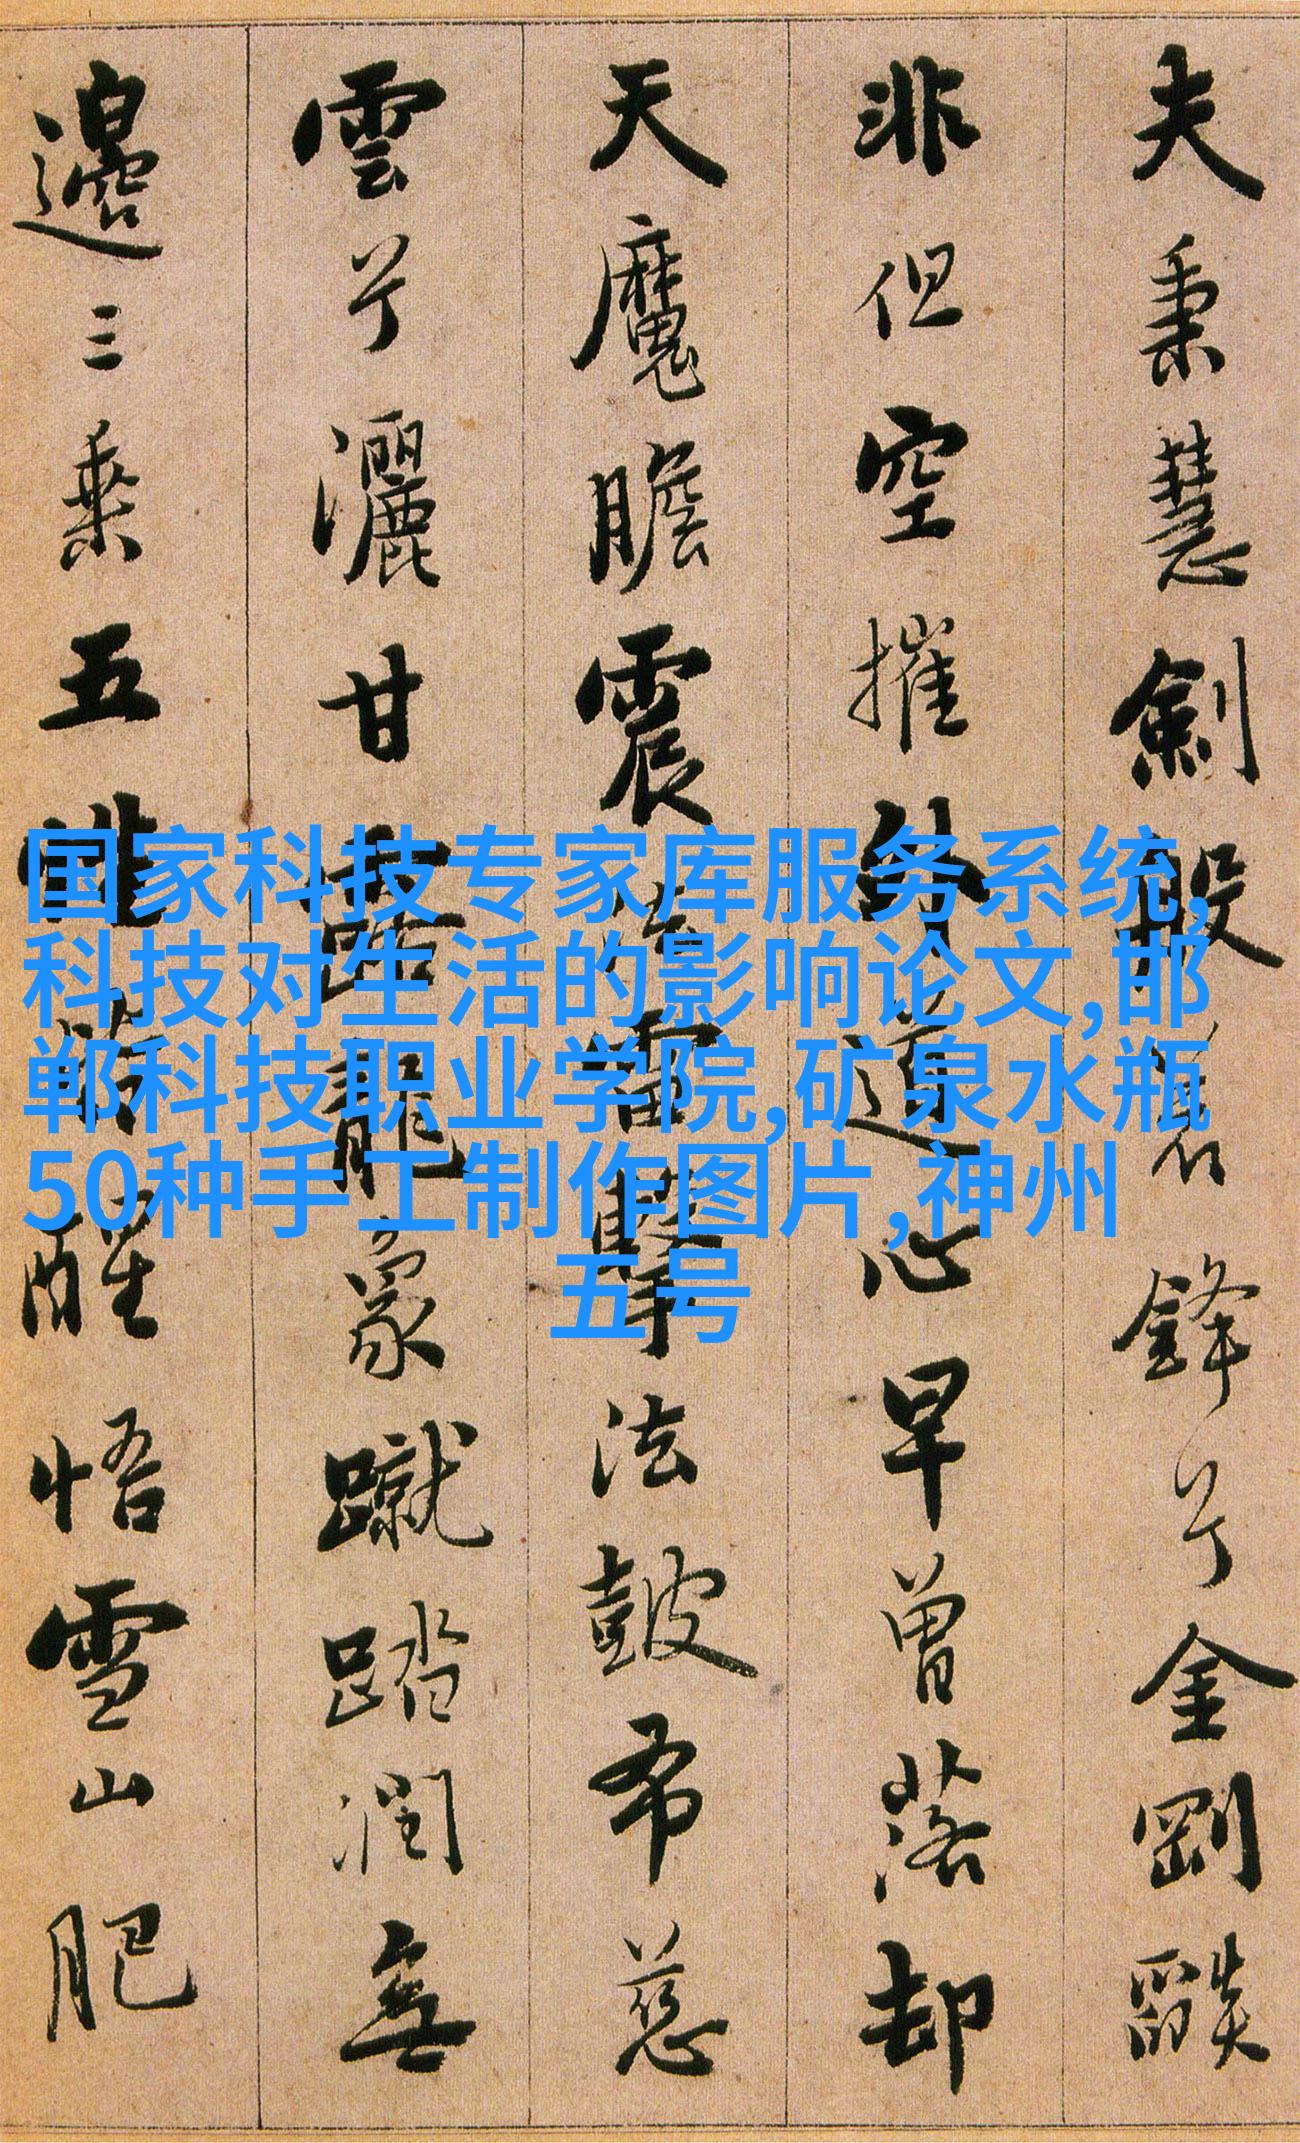 夫秉慧劍般若鋒兮金剛燄
非但空摧外道心早曾落却
天魔膽震法雷擊法鼓布慈
雲兮灑甘露龍象蹴踏潤無
邊三乘五性皆醒悟雪山肥
国家科技专家库服务系统,
科技对生活的影响论文,邯
郸科技职业学院,矿泉水瓶
50种手工制作图片,神州
五号